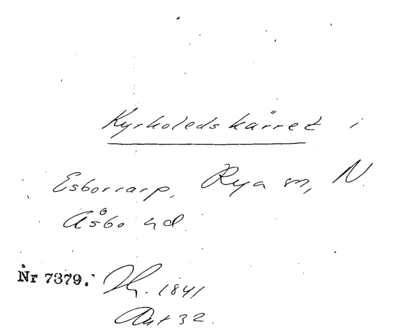 Kyrkoledskärret i
Esborrarp, Rya sn, N.
Åsbo hd.
Nr 7379. H. 1841
Ant 32.